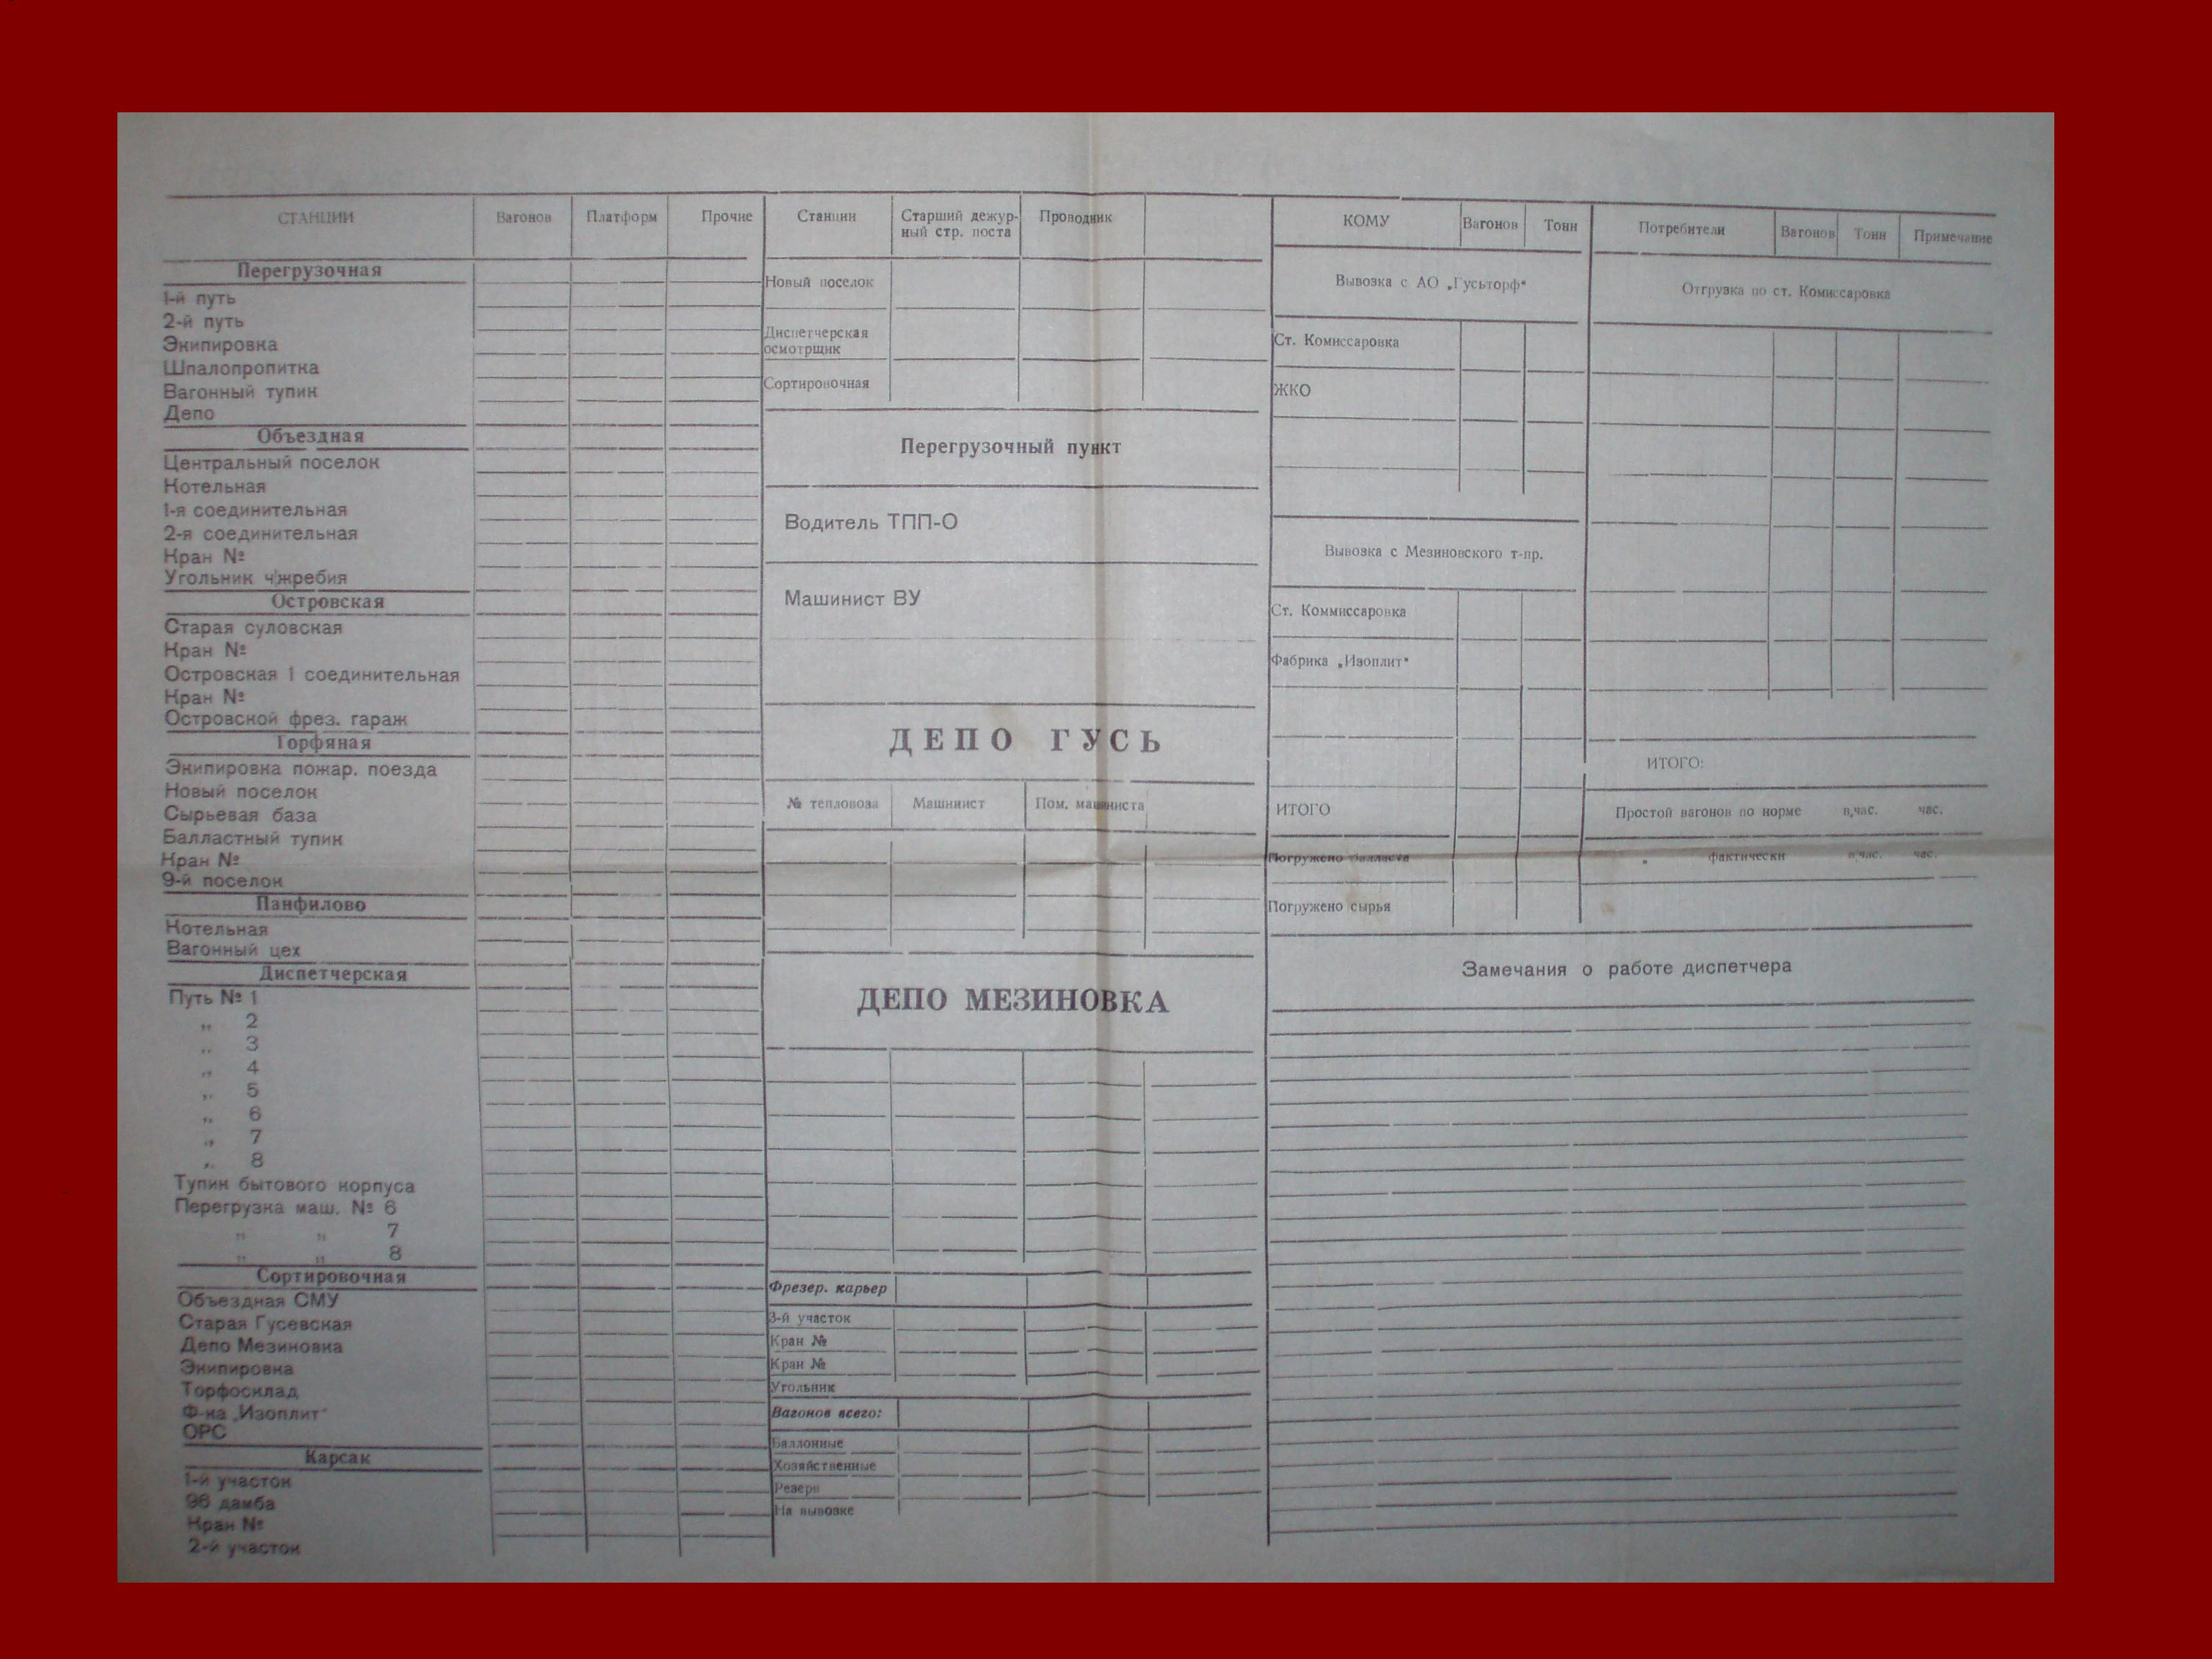 СТАНЦИИ Вагонов Платформ Прочие
Перегрузочная
1-й путь
2-й путь
Экипировка
Шпалопропитка
Вагонный тупик
Депо
Объездная
Центральный поселок
Котельная
1-я соединительная
2-я соединительная
Кран №
Угольник ч/жребия
Островская
Старая суловская
Кран №
Островская 1 соединительная
Кран №
Островской фрез. гараж
Торфяная
Экипировка пожар. поезда
Новый поселок
Сырьевая база
Балластный тупик
Кран №
9-й поселок
Панфилово
Котельная
Вагонный цех
Диспетчерская
Путь № 1
„ 2
„ 3
„ 4
„ 5
„ 6
„ 7
„ 8
Тупик бытового корпуса
Перегрузка маш. № 6
„ „ 7
„ „ 8
Сортировочная
Объездная СМУ
Старая Гусевская
Депо Мезиновка
Экипировка
Торфосклад
Ф-ка „Изоплит"
ОРС
Карсак
1-й участок
96 дамба
Кран №
2-й участок
Станции Старший дежур- Проводник
ный стр. поста
Новый поселок
Диспетчерская
осмотрщик
Сортировочная
Перегрузочный пункт
Водитель ТПП-О
Машинист ВУ
ДЕПО ГУСЬ
№ тепловоза Машинист Пом. машиниста
ДЕПО МЕЗИНОВКА
Фрезер. карьер
3-й участок
Кран №
Кран №
Угольник
Вагонов всего:
Баллонные
Хозяйственные
Резерв
На вывозке
КОМУ Вагонов Тонн
Вывозка с АО „Гусьторф"
Ст. Комиссаровка
ЖКО
Вывозка с Мезиновского т-пр.
Ст. Коммиссаровка
Фабрика „Изоплит"
ИТОГО
Погружено балласта
Погружено сырья
Потребители Вагонов Тонн Примечание
Отгрузка по ст. Комиссаровка
ИТОГО:
Простой вагонов по норме в,час. час.
„ фактически в,час. час.
Замечания о работе диспетчера